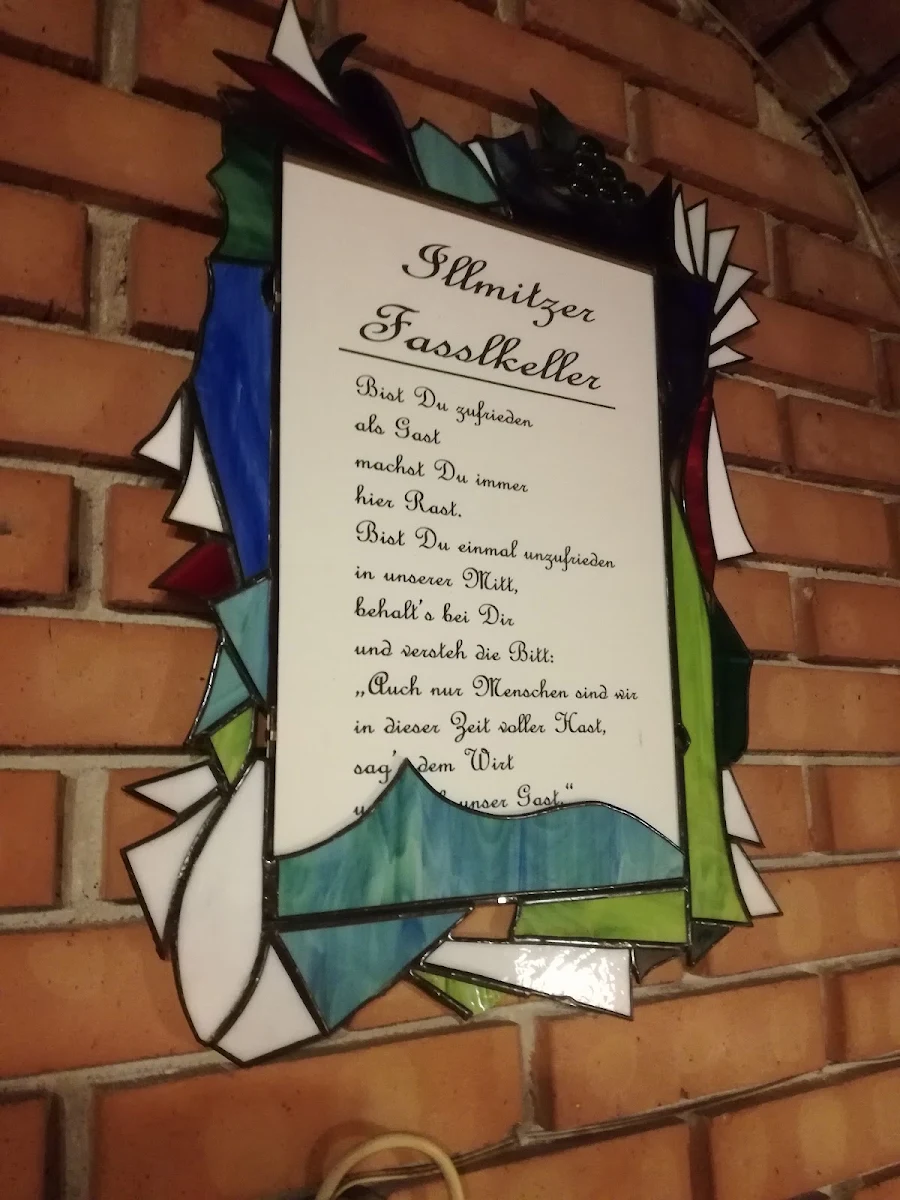 Illmitzer
Fasslkeller
Bist Du zufrieden
als Gast
machst Du immer
hier Rast.
Bist Du einmal unzufrieden
in unserer Mitt,
behalt's bei Dir
und versteh die Bitt:
„Auch nur Menschen sind wir
in dieser Zeit voller Hast,
sag' dem Wirt
unser Gast."